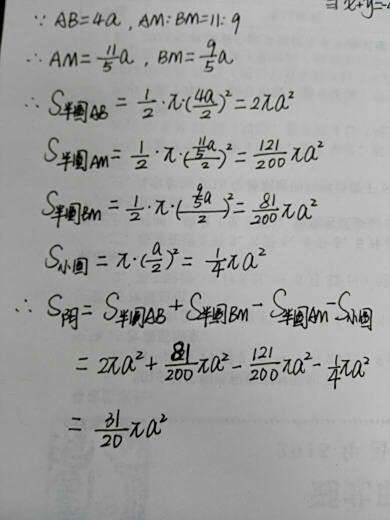 ∵ AB=4a, AM:BM=11:9
∴ AM=11/5a, BM=9/5a
∴ S半圆AB = 1/2·π·(4a/2)²=2πa²
S半圆AM = 1/2·π·(11/5a/2)²=121/200πa²
S半圆BM = 1/2·π·(9/5a/2)²=81/200πa²
S小圆 = π·(a/2)²=1/4πa²
∴ S阴= S半圆AB + S半圆BM - S半圆AM - S小圆
= 2πa²+81/200πa²-121/200πa²-1/4πa²
= 31/20πa²